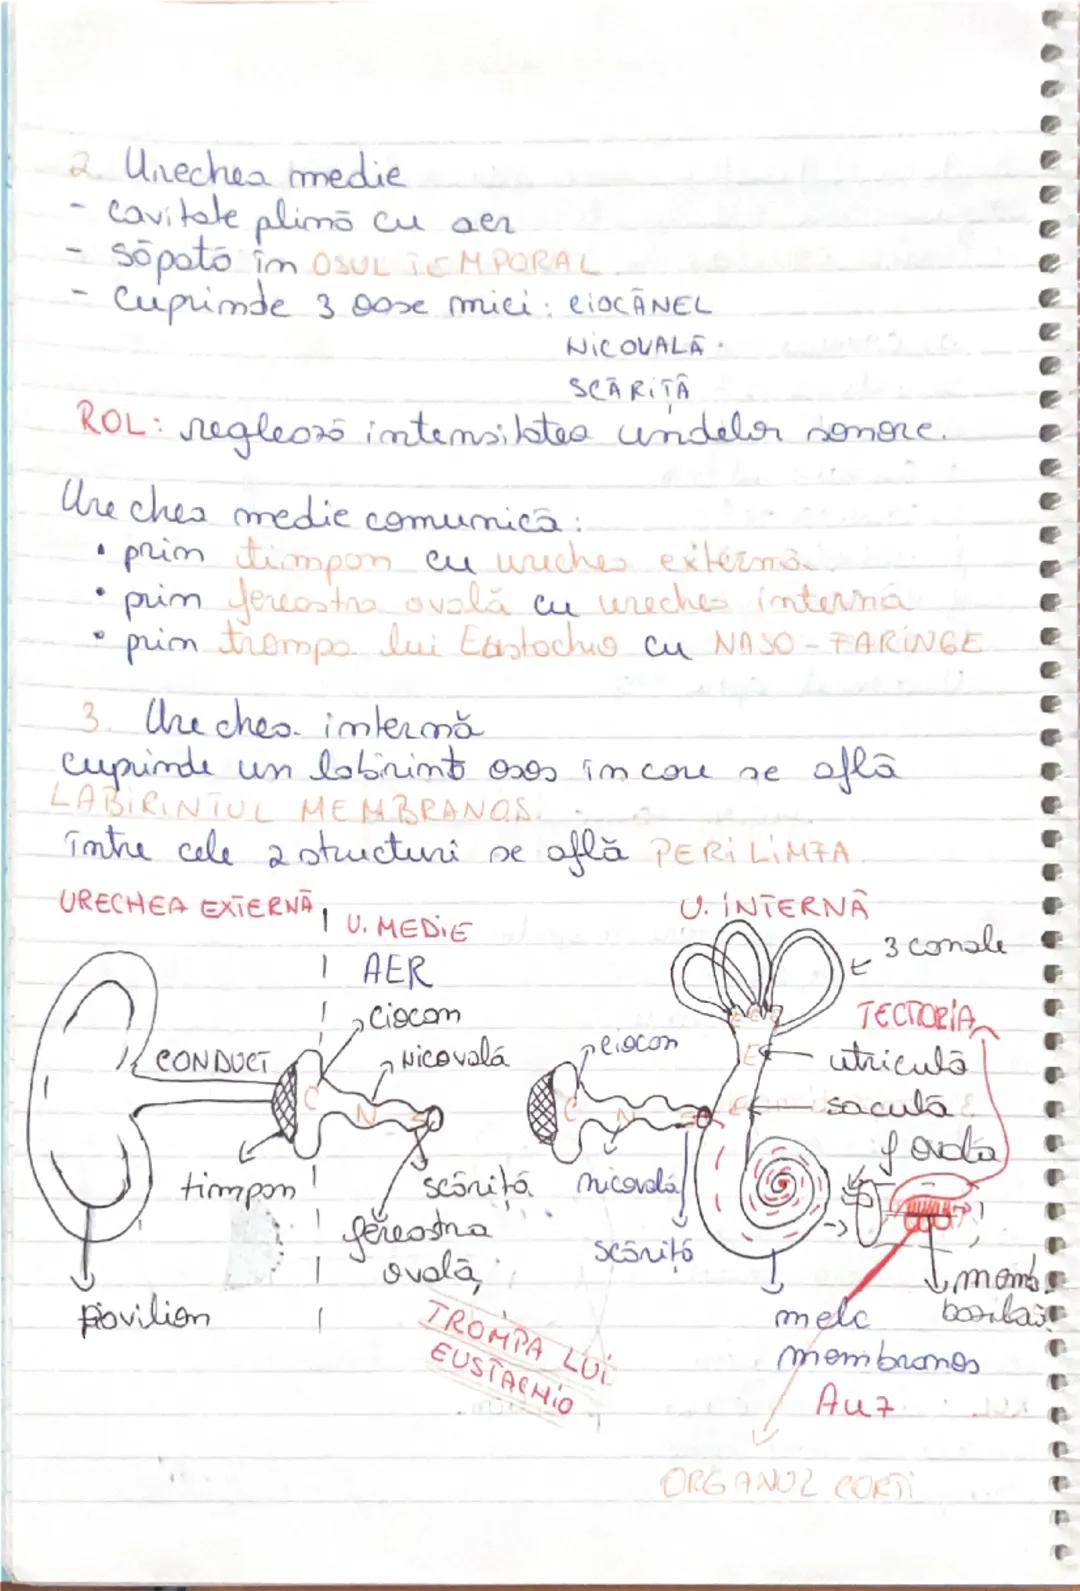 2. Urechea medie
- cavitate plină cu aer
- săpată în OSUL TEMPORAL
- Cuprinde 3 oase mici: CIOCĂNEL
NICOVALĂ
SCĂRIȚĂ
ROL: reglează intensitatea undelor sonore.
Urechea medie comunică:
• prin timpan cu urechea externă
• prin fereastra ovală cu urechea internă
• prin trompa lui Eustachio cu NASO-FARINGE
3. Urechea internă
cuprinde un labirint osos în care se află
LABIRINTUL MEMBRANOS.
între cele 2 structuri se află PERILIMFA
URECHEA EXTERNĂ
U. MEDIE
U. INTERNĂ
AER
3 canale
ciocan
TECTORIA
CONDUCT
nicovală
ciocan
utriculă
C
N
S
C
N
S
E
saculă
E
f ovală
timpan
scăriță
nicovală
fereastra
ovală
scăriță
pavilion
memb
bazilară
TROMPA LUI
EUSTACHIO
melc
membranos
Auz
ORGANUL CORTI